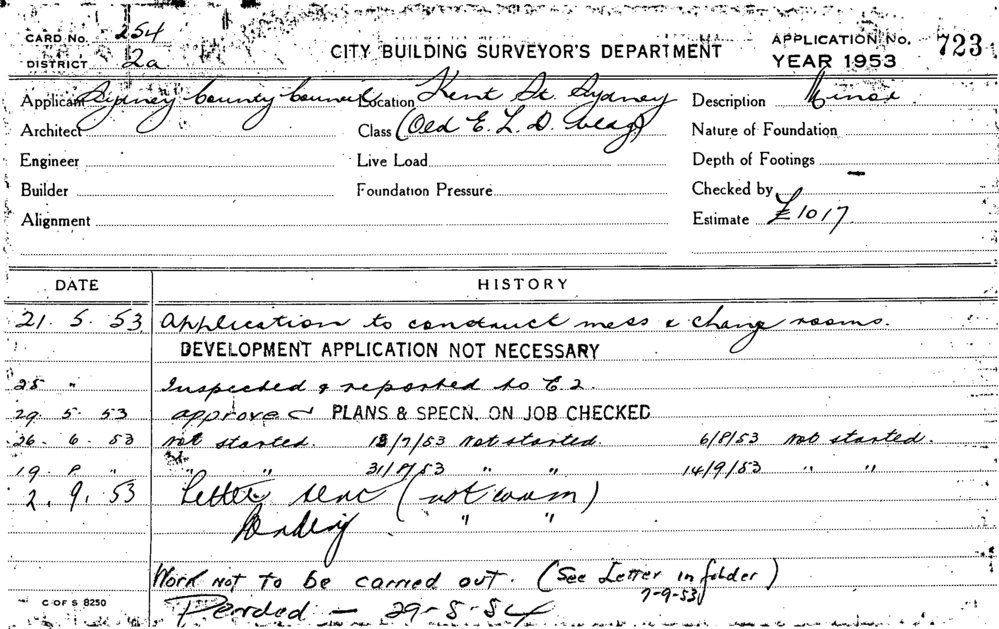 CARD No. 254
DISTRICT 2a
CITY BUILDING SURVEYOR'S DEPARTMENT
APPLICATION No. 723
YEAR 1953
Applicant Sydney County Council Location Kent St. Sydney Description Minor
Architect Class (Old E. L. D. bldg) Nature of Foundation
Engineer Live Load Depth of Footings
Builder Foundation Pressure Checked by
Alignment Estimate £1017
DATE HISTORY
21. 5. 53 Application to conduct mess & change rooms.
DEVELOPMENT APPLICATION NOT NECESSARY
25 " Inspected & reported to C.I.
29. 5. 53 approved PLANS & SPECN. ON JOB CHECKED
26. 6. 53 Not started. 13/7/53 Not started. 6/8/53 Not started.
19 8 " " " 31/8/53 " " 14/9/53 " "
2. 9. 53 Letter sent (not comm)
Pending " "
Work not to be carried out. (See Letter in folder)
7-9-53
C OF S 8250 Pended - 29-5-54